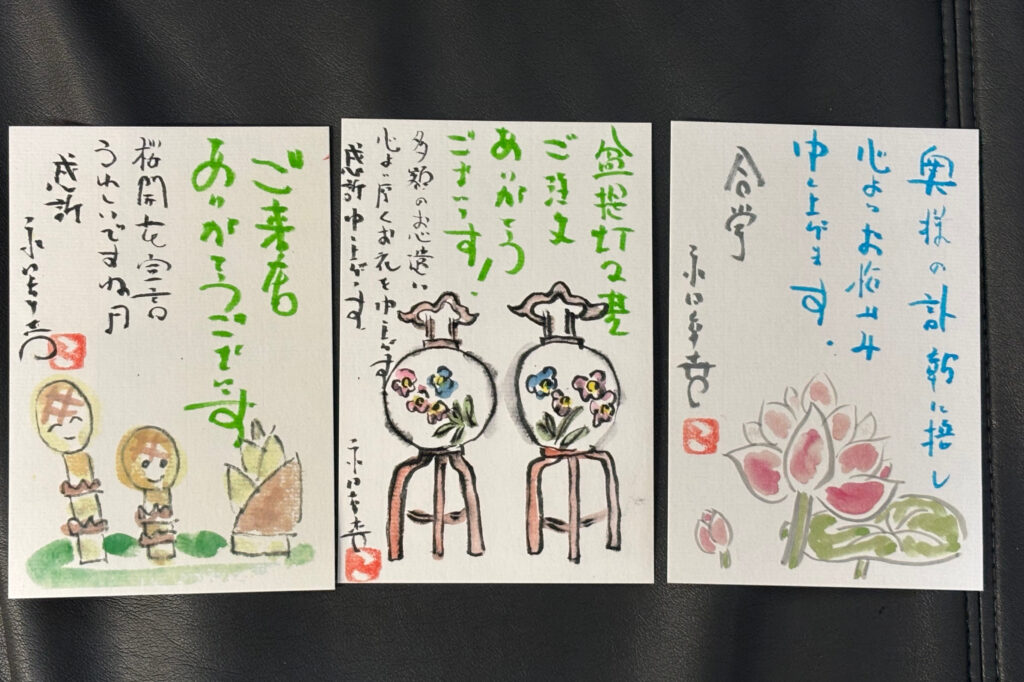 ご来店
ありがとうございます。
桜開花宣言
うれしいですね
感謝
盆提灯2基
ご注文
ありがとう
ございます!
多額のお心遣い
心より厚くお礼を申上げます
感謝申し上げます
奥様の訃報に接し
心よりお悔やみ
申し上げます.
合掌